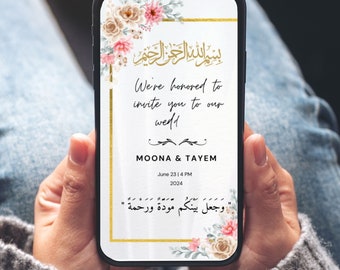 بسم الله الرحمن الرحيم
We're honored to
invite you to our
wedd
MOONA & TAYEM
June 23 | 4 PM
2024
" وَجَعَلَ بَيْنَكُم مَّوَدَّةً وَرَحْمَةً "